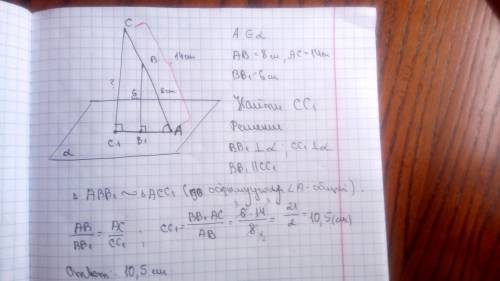 C
B
14см
?
6
8см
C1 B1 A
α
A ∈ α
AB = 8 см, AC = 14 см
BB1 = 6 см
Найти CC1
Решение
BB1 ⊥ α; CC1 ⊥ α
BB1 || CC1
ABB1 ~ ACC1 (по острому углу ∠A - общий).
AB/BB1 = AC/CC1; CC1 = BB1·AC/AB = 6·14/8 = 21/2 = 10,5 (см)
Ответ: 10,5 см